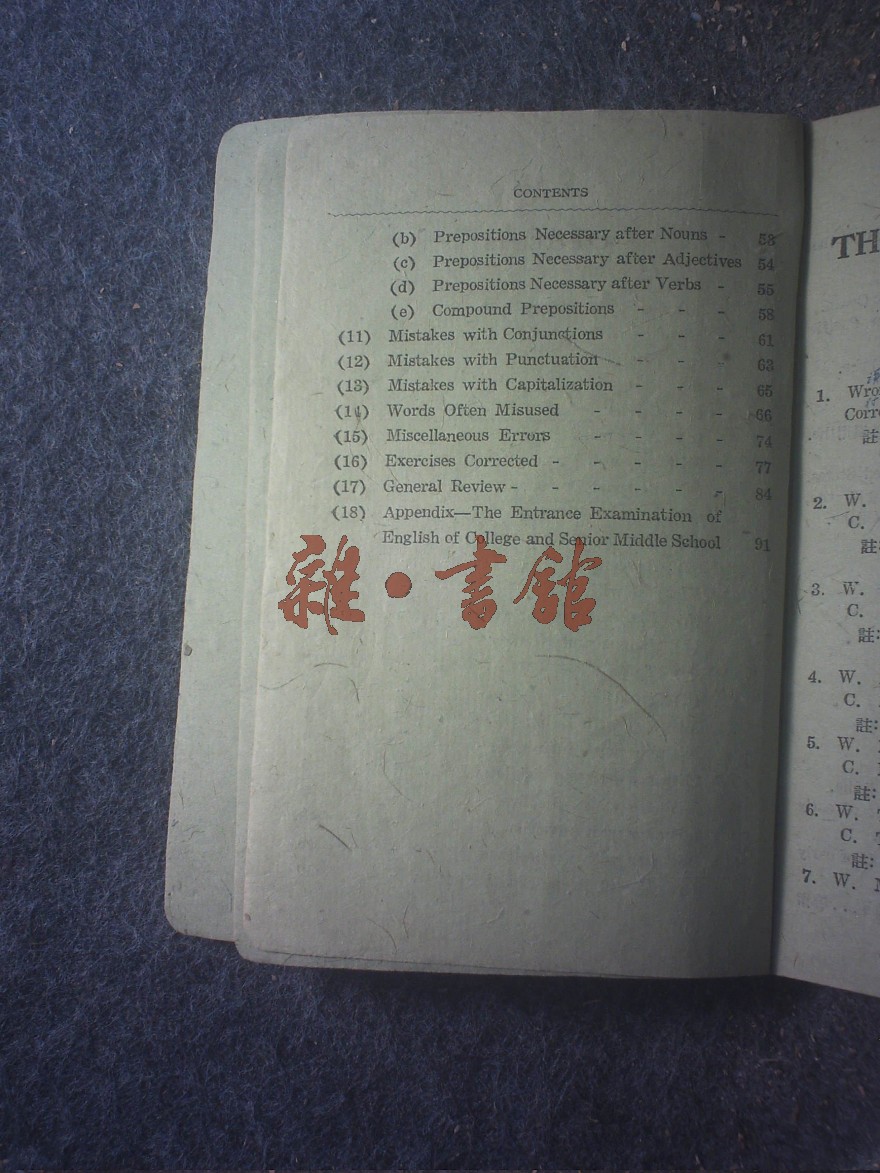 CONTENTS
(b) Prepositions Necessary after Nouns - 53
(c) Prepositions Necessary after Adjectives 54
(d) Prepositions Necessary after Verbs - 55
(e) Compound Prepositions - - - 58
(11) Mistakes with Conjunctions - - - 61
(12) Mistakes with Punctuation - - - 63
(13) Mistakes with Capitalization - - - 65
(14) Words Often Misused - - - - 66
(15) Miscellaneous Errors - - - - 74
(16) Exercises Corrected - - - - - 77
(17) General Review - - - - - - 84
(18) Appendix—The Entrance Examination of
English of College and Senior Middle School 91
雜·書館
TH
1. Wro
Corr
註
2. W.
C.
註:
3. W.
C.
註:
4. W.
C.
註:
5. W.
C.
註:
6. W.
C.
註:
7. W.